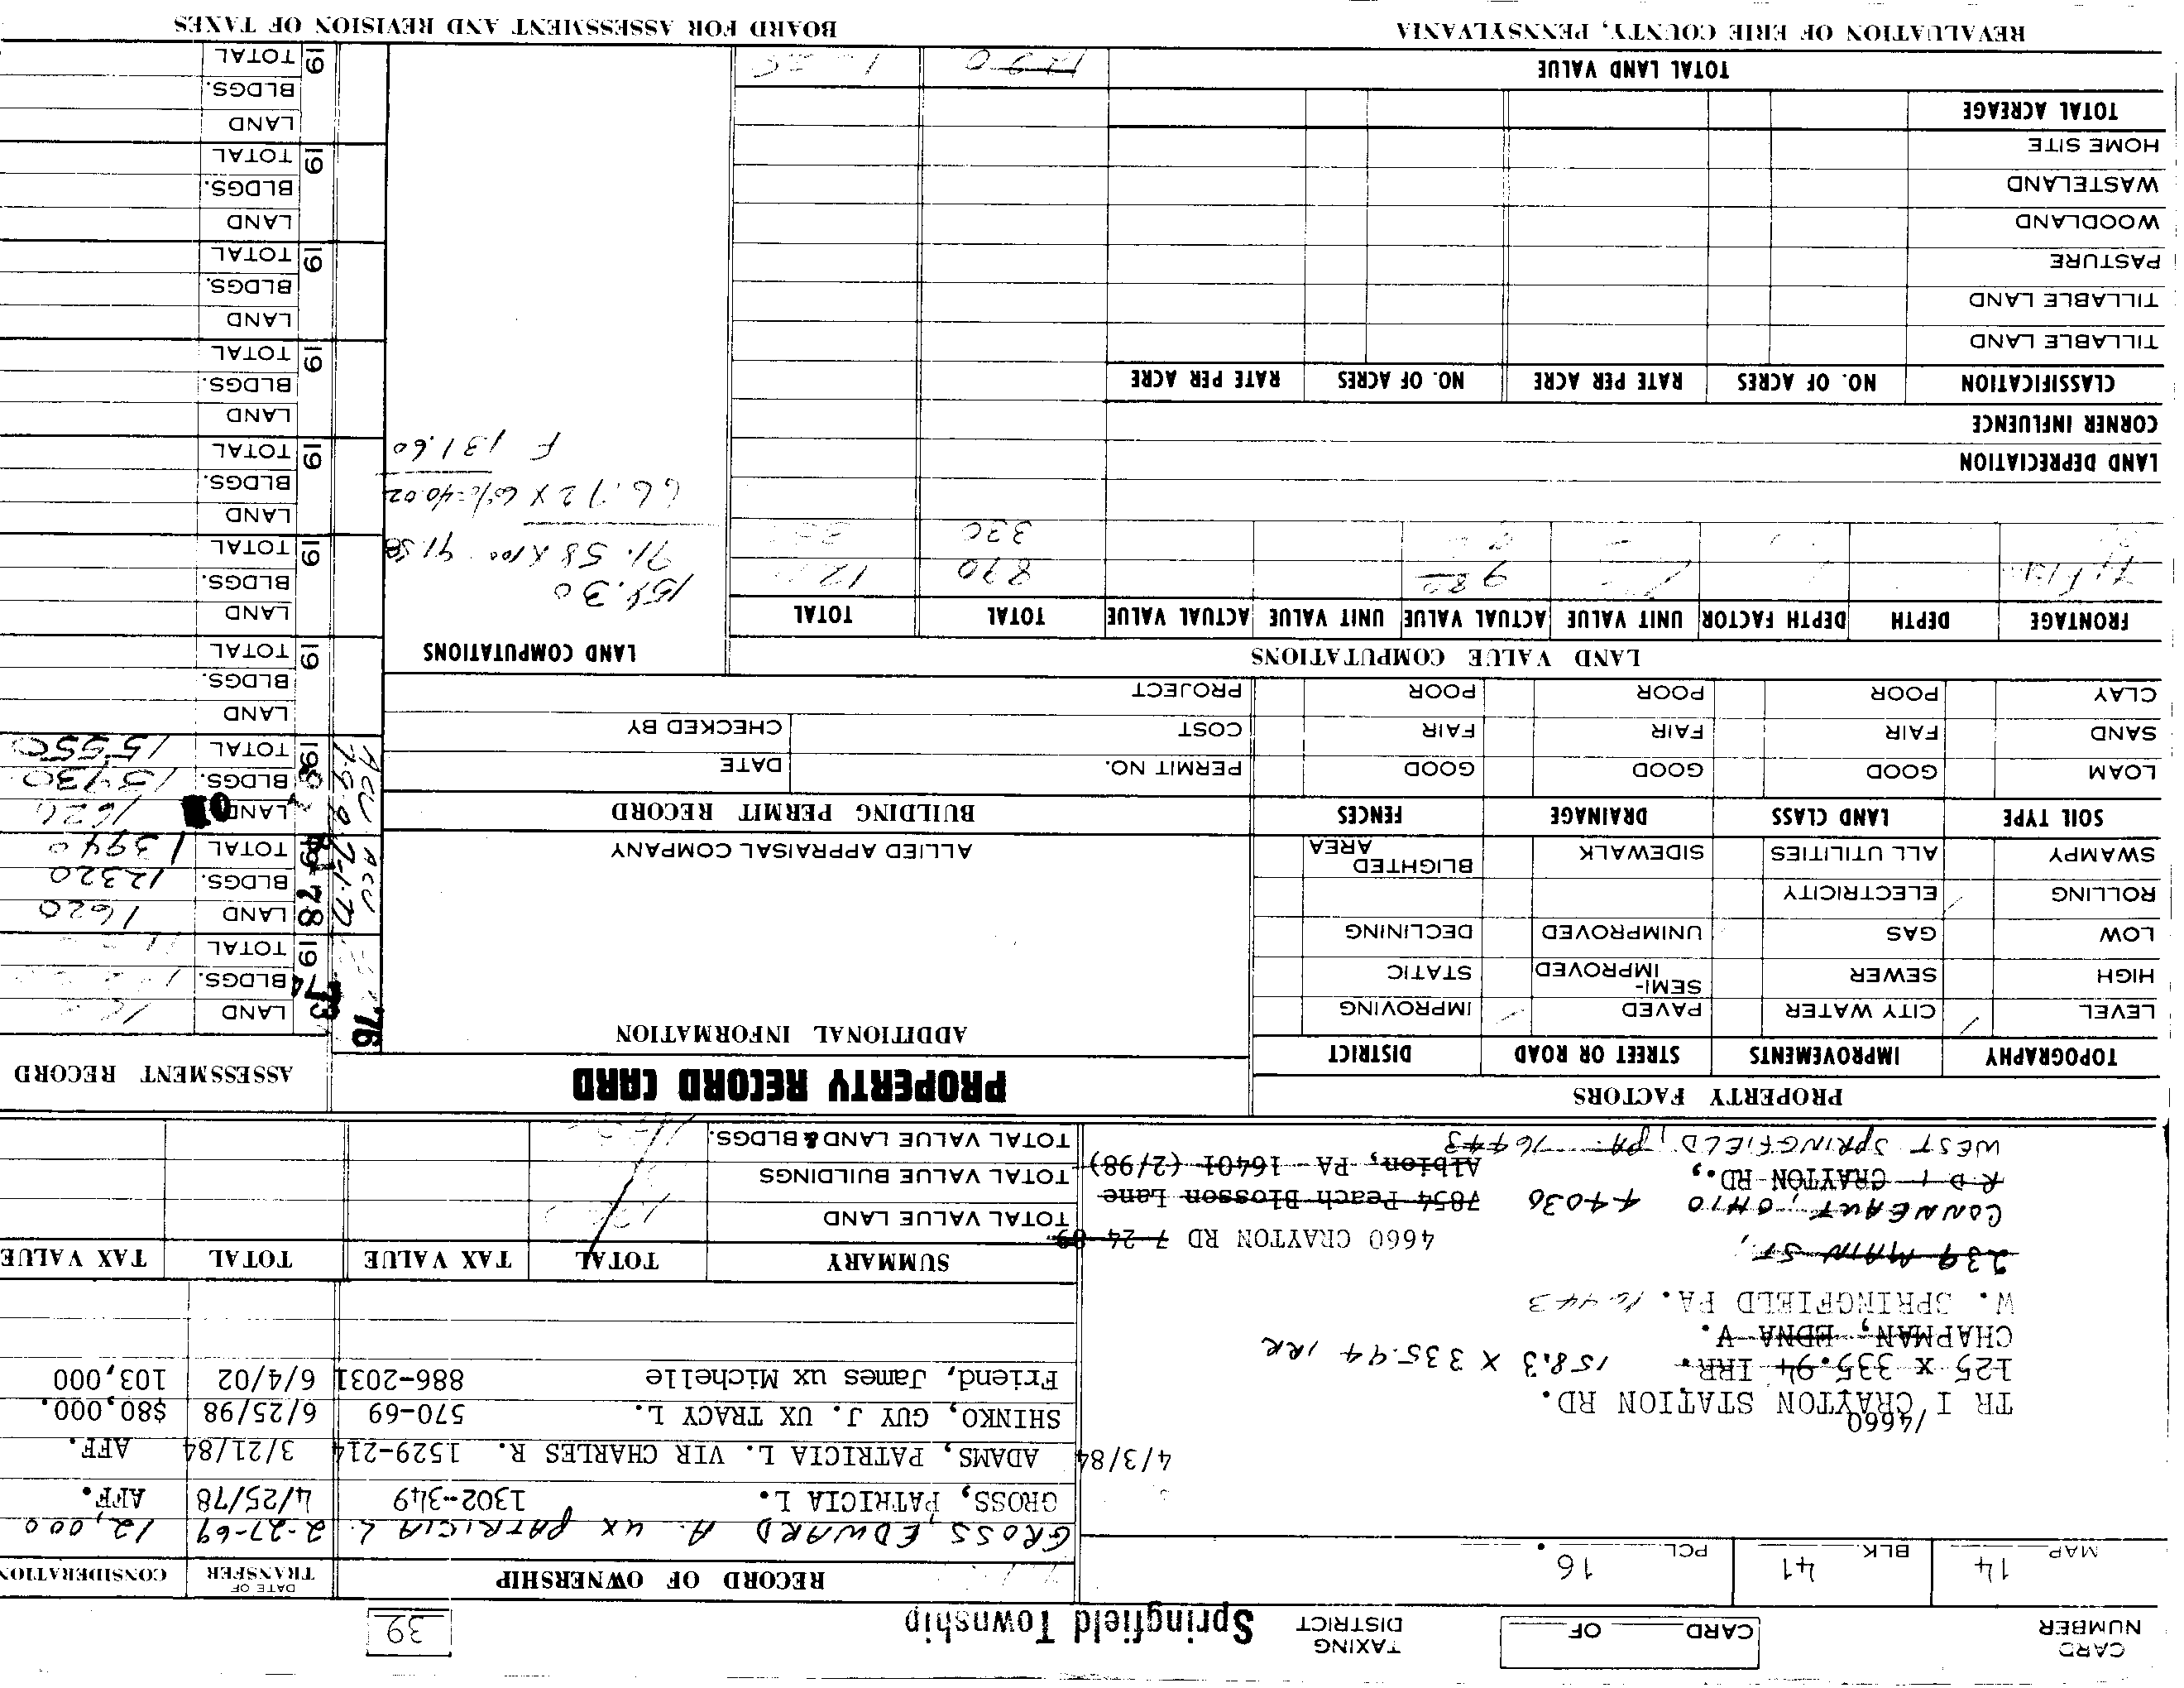 CARD NUMBER
CARD OF
TAXING DISTRICT Springfield Township
39
MAP 14 BLK. 41 PCL. 16.
RECORD OF OWNERSHIP DATE OF TRANSFER CONSIDERATION
GROSS, EDWARD A. UX PATRICIA L. 2-27-69 12,000
GROSS, PATRICIA L. 1302-349 4/25/78 AFF.
4/3/84 ADAMS, PATRICIA L. VIR CHARLES R. 1529-214 3/21/84 AFF.
SHINKO, GUY J. UX TRACY L. 570-69 6/25/98 $80,000.
Friend, James ux Michelle 886-2031 6/4/02 103,000
4660
TR I CRAYTON STATION RD.
125 x 335.94 IRR. 158.3 X 335.94 IRR
CHAPMAN, EDNA V.
W. SPRINGFIELD PA. 16443
239 MAIN ST.,
CONNEAUT, OHIO 44030
R D 1 CRAYTON RD.,
WEST SPRINGFIELD, PA. 16443
4660 CRAYTON RD 7-24-89
7854 Peach Blosson Lane
Albion, PA 16401 (2/98)
SUMMARY TOTAL TAX VALUE TOTAL TAX VALUE
TOTAL VALUE LAND
TOTAL VALUE BUILDINGS
TOTAL VALUE LAND & BLDGS.
PROPERTY FACTORS
TOPOGRAPHY IMPROVEMENTS STREET OR ROAD DISTRICT
LEVEL CITY WATER PAVED IMPROVING
HIGH SEWER SEMI-IMPROVED STATIC
LOW GAS UNIMPROVED DECLINING
ROLLING ELECTRICITY
SWAMPY ALL UTILITIES SIDEWALK BLIGHTED AREA
SOIL TYPE LAND CLASS DRAINAGE FENCES
LOAM GOOD GOOD GOOD
SAND FAIR FAIR FAIR
CLAY POOR POOR POOR
PROPERTY RECORD CARD
ADDITIONAL INFORMATION
ALLIED APPRAISAL COMPANY
BUILDING PERMIT RECORD
PERMIT NO. DATE
COST CHECKED BY
PROJECT
ASSESSMENT RECORD
'76
73
74
19 LAND
BLDGS.
TOTAL
78
19 LAND 1620
BLDGS. 12320
TOTAL 13940
19 LAND
BLDGS. 13930
TOTAL 15550
19 LAND
BLDGS.
TOTAL
19 LAND
BLDGS.
TOTAL
19 LAND
BLDGS.
TOTAL
19 LAND
BLDGS.
TOTAL
19 LAND
BLDGS.
TOTAL
19 LAND
BLDGS.
TOTAL
19 LAND
BLDGS.
TOTAL
LAND VALUE COMPUTATIONS
LAND COMPUTATIONS
FRONTAGE DEPTH DEPTH FACTOR UNIT VALUE ACTUAL VALUE UNIT VALUE ACTUAL VALUE TOTAL TOTAL
980 870
330
158.30
91.58 X 100 91.58
66.72 X 60%=40.02
F 131.60
LAND DEPRECIATION
CORNER INFLUENCE
CLASSIFICATION NO. OF ACRES RATE PER ACRE NO. OF ACRES RATE PER ACRE
TILLABLE LAND
TILLABLE LAND
PASTURE
WOODLAND
WASTELAND
HOME SITE
TOTAL ACREAGE
TOTAL LAND VALUE
REVALUATION OF ERIE COUNTY, PENNSYLVANIA
BOARD FOR ASSESSMENT AND REVISION OF TAXES